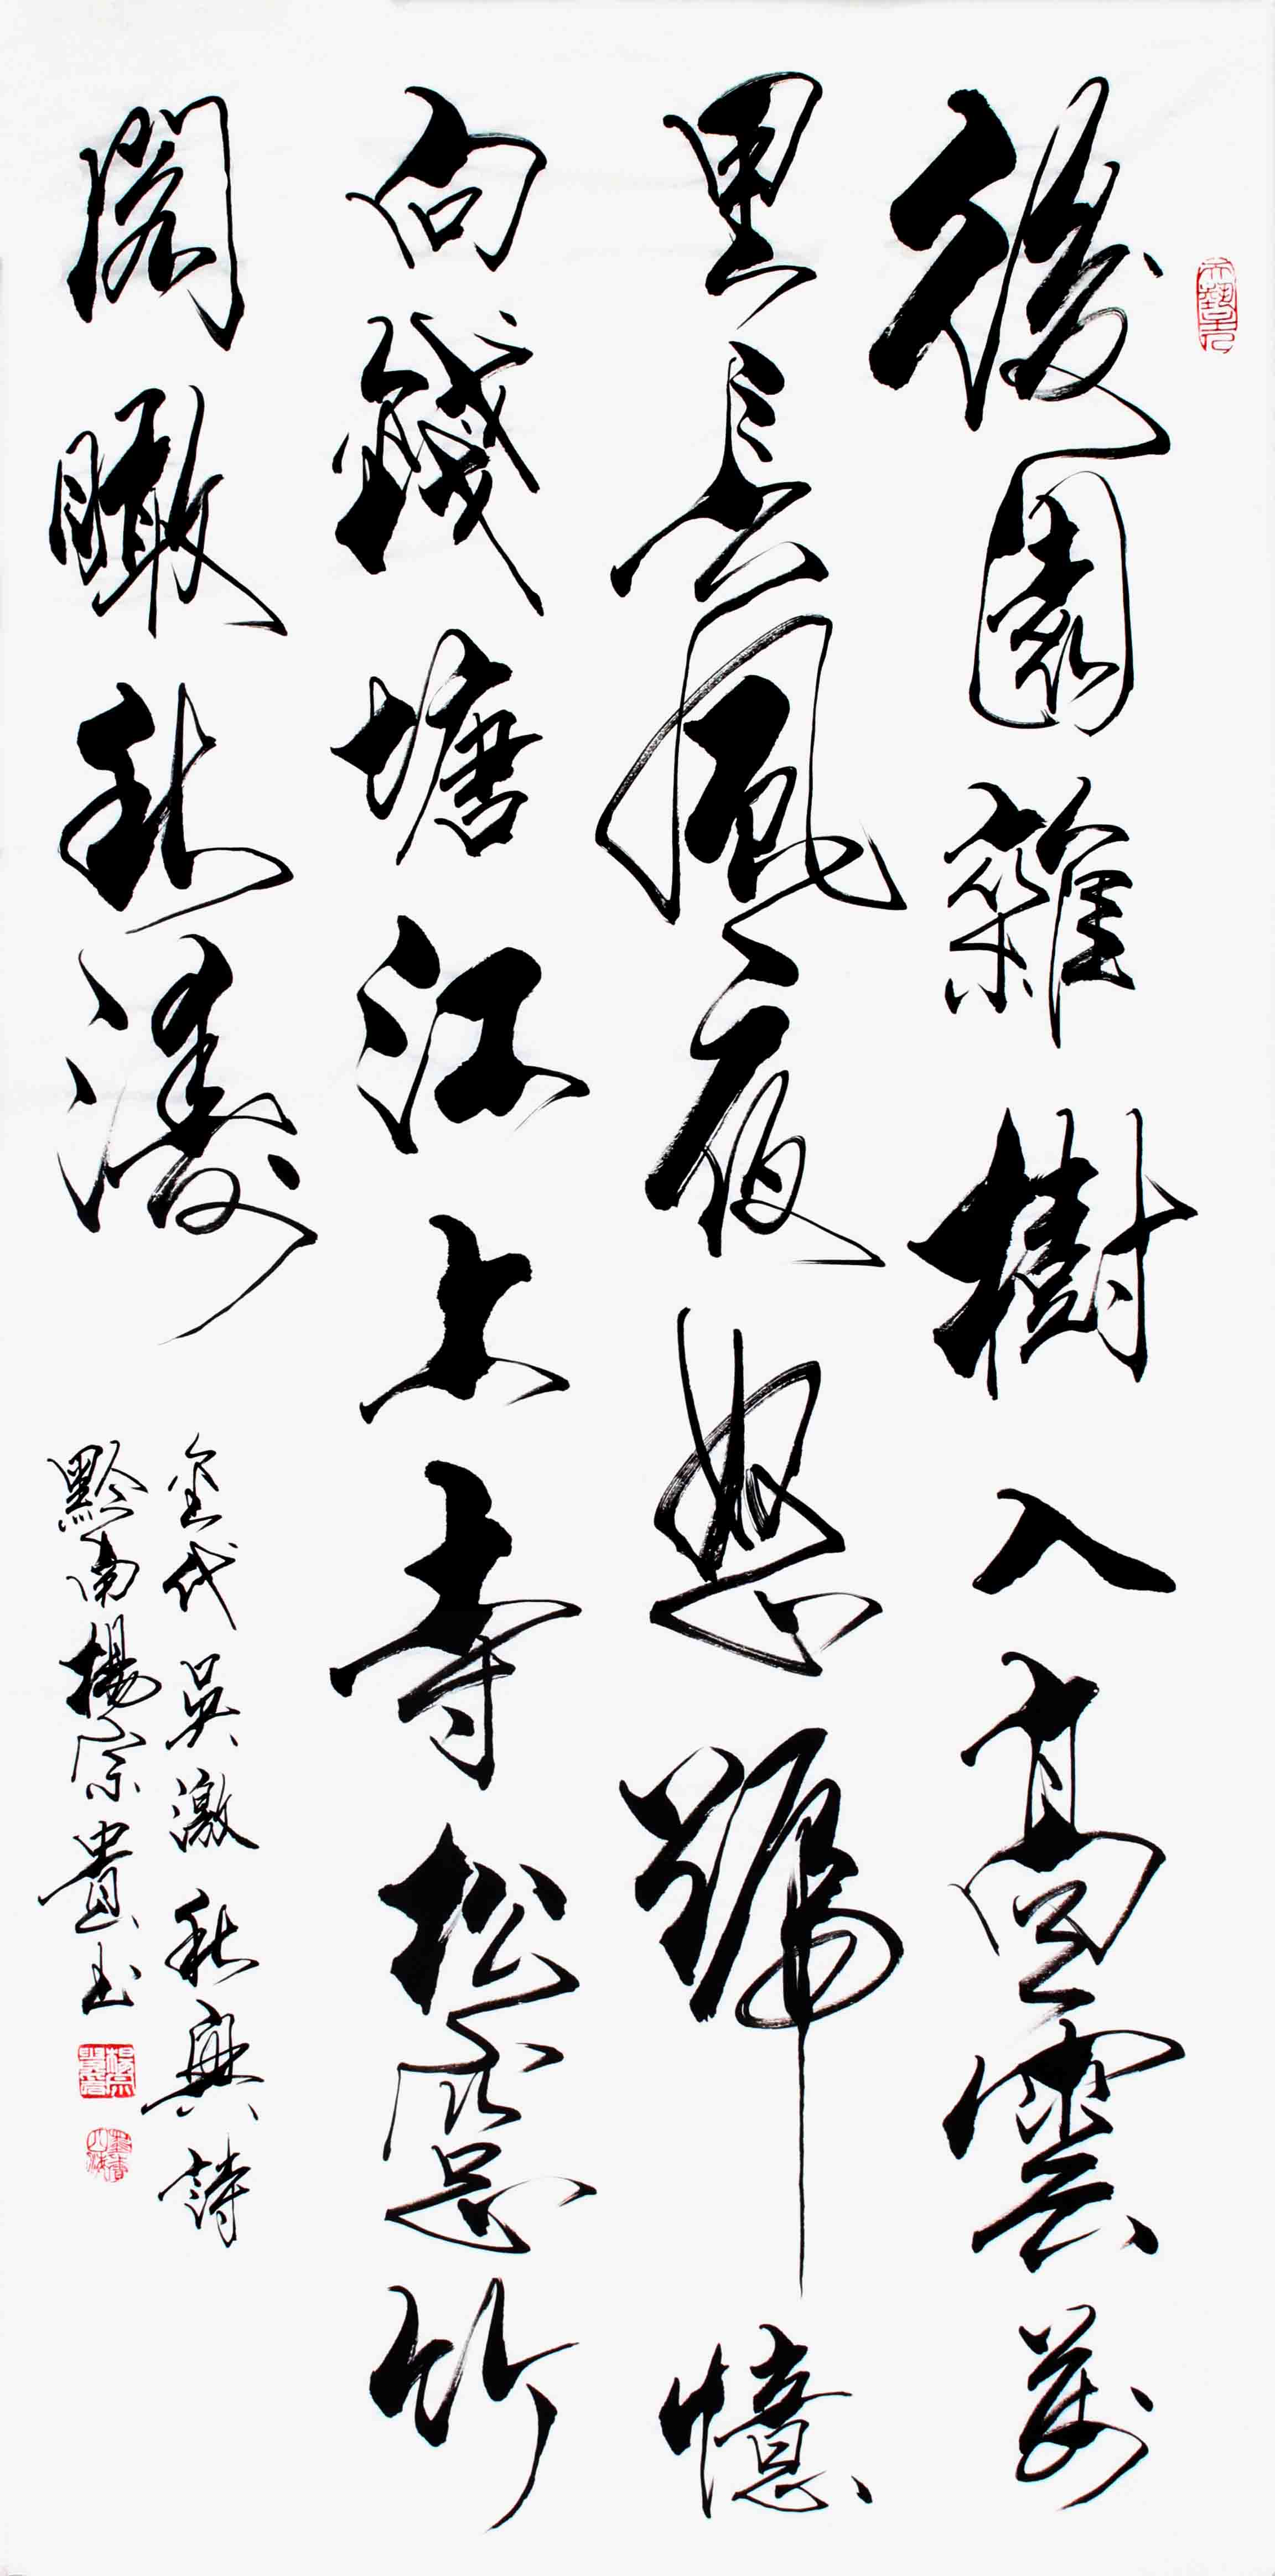 後園雜樹入高雲萬
里長風夜怒號憶
向錢塘江上寺松窓竹
閣瞰秋濤
金代吳激秋興詩
黔南楊宗貴書